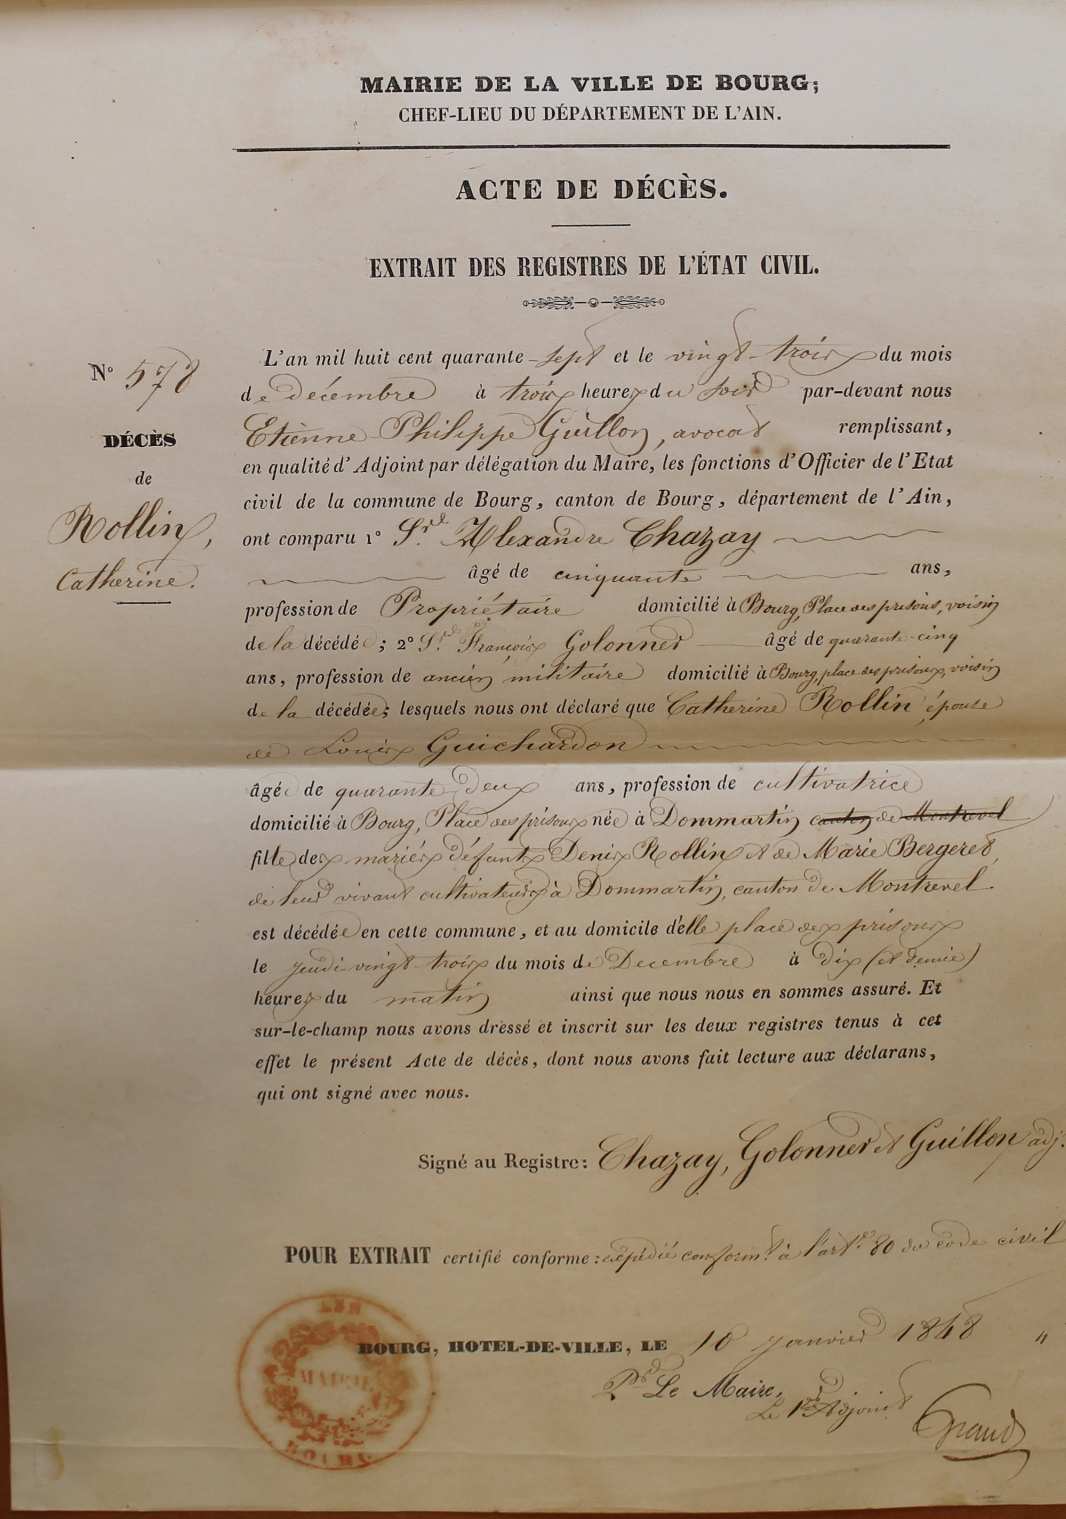 MAIRIE DE LA VILLE DE BOURG;
CHEF-LIEU DU DÉPARTEMENT DE L'AIN.
ACTE DE DÉCÈS.
EXTRAIT DES REGISTRES DE L'ÉTAT CIVIL.
N° 578
DÉCÈS
de
Rollin,
Catherine.
L'an mil huit cent quarante-sept et le vingt-trois du mois
de décembre à trois heures du soir par-devant nous
Etienne Philippe Guillon, avocat remplissant,
en qualité d'Adjoint par délégation du Maire, les fonctions d'Officier de l'Etat
civil de la commune de Bourg, canton de Bourg, département de l'Ain,
ont comparu 1° Sr. Alexandre Chazay
âgé de cinquante ans,
profession de Propriétaire domicilié à Bourg, Place des prisons, voisin
de la décédée; 2° Sr. François Golonner âgé de quarante-cinq
ans, profession de ancien militaire domicilié à Bourg, place des prisons, voisin
de la décédée; lesquels nous ont déclaré que Catherine Rollin épouse
de Louis Guichardon
âgée de quarante-deux ans, profession de cultivatrice
domicilié à Bourg, Place des prisons née à Dommartin canton de Montrevel
fille des mariés défunts Denis Rollin et de Marie Bergeret,
de leur vivant cultivateurs à Dommartin, canton de Montrevel.
est décédée en cette commune, et au domicile d'elle place des prisons
le jeudi vingt-trois du mois de Decembre à dix (et demie)
heures du matin ainsi que nous nous en sommes assuré. Et
sur-le-champ nous avons dressé et inscrit sur les deux registres tenus à cet
effet le présent Acte de décès, dont nous avons fait lecture aux déclarans,
qui ont signé avec nous.
Signé au Registre: Chazay, Golonner et Guillon adj.
POUR EXTRAIT certifié conforme: expédié conformt. à l'art. 80 du code civil
BOURG, HOTEL-DE-VILLE, LE 10 janvier 1848 "
Pr. Le Maire,
Le 1er Adjoint
MAIRIE